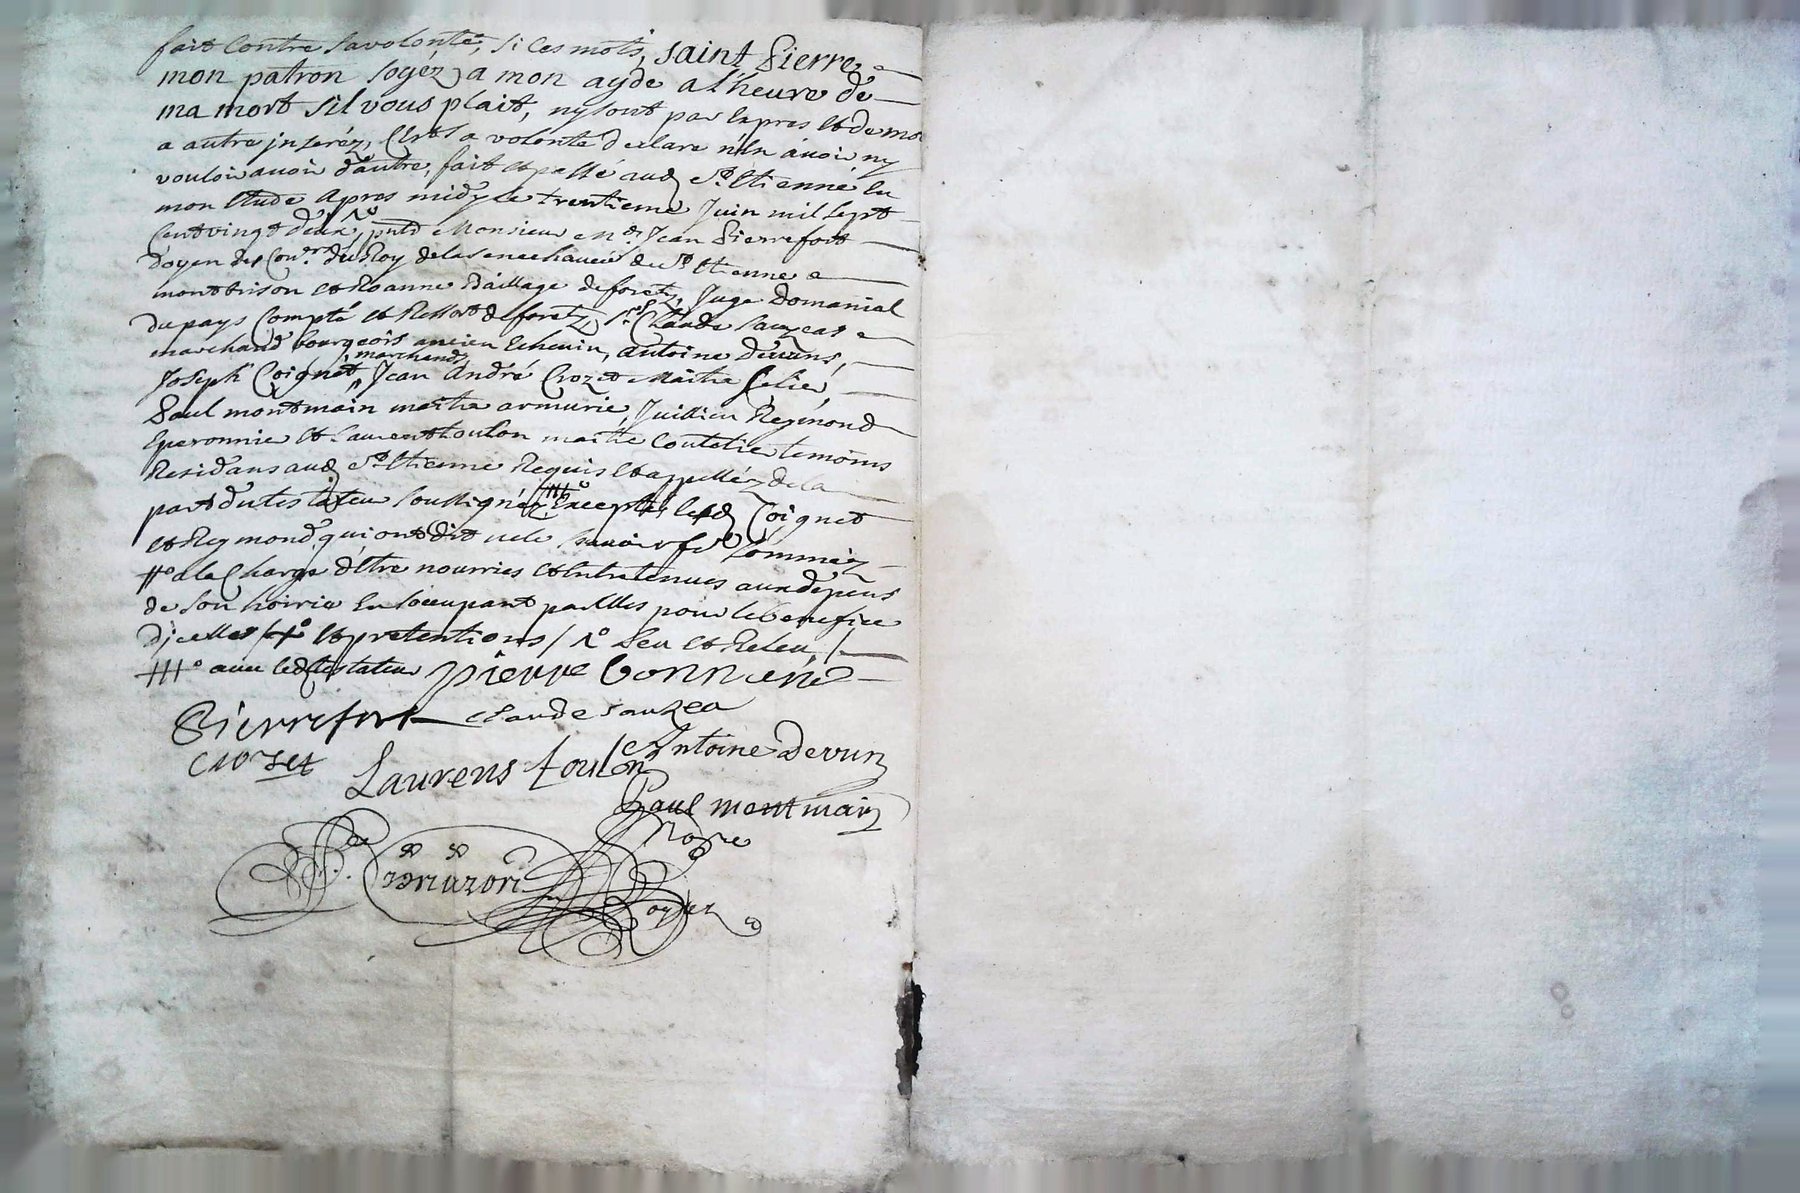 fait contre sa volonté, si ces mots, saint Pierre
mon patron soyéz a mon ayde a l'heure de
ma mort sil vous plait, ny sont par exprés et de mot
a autre jnseréz, C'est sa volonté declare n'en avoir ny
vouloir avoir d'autre, fait et passé aud St. Etienne en
mon etude apres midy le trentieme Juin mil sept
cent vingt deux, pnts Monsieur Me. Jean Pierrefort
doyen des Con.ers du Roy de la senechaucé de St Etienne
montbrison et Roanne Baillage de foretz, Juge Domanial
du pays Compté et Ressort de foretz, sr. Claude Sauzeas
marchand bourgeois ancien Echevin, Antoine Devuns,
Joseph Coignet, marchands, Jean André Crozet Maitre selier,
Paul montmain maitre armurier, Jullien Reymond
Eperonnier et Laurent toulon maitre Coutelier temoins
Residans aud St. Etienne Requis et appelléz de la
part du testateur soussignéz Excepté lesd Coignet
et Reymond qui ont dit ne le savoir de ce somméz
#o a la Charge d'être nourries et entretenues aux depens
de son hoirie en s'occupant par elles pour le benefice
d'jcelles / +o et pretentions / 1o Leu et Releu /
###o avec led testateur Pierre bonnene
Pierrefort claude sauzea
crozet Laurens toulon Antoine Devun
Paul montmain
Nore
Royer